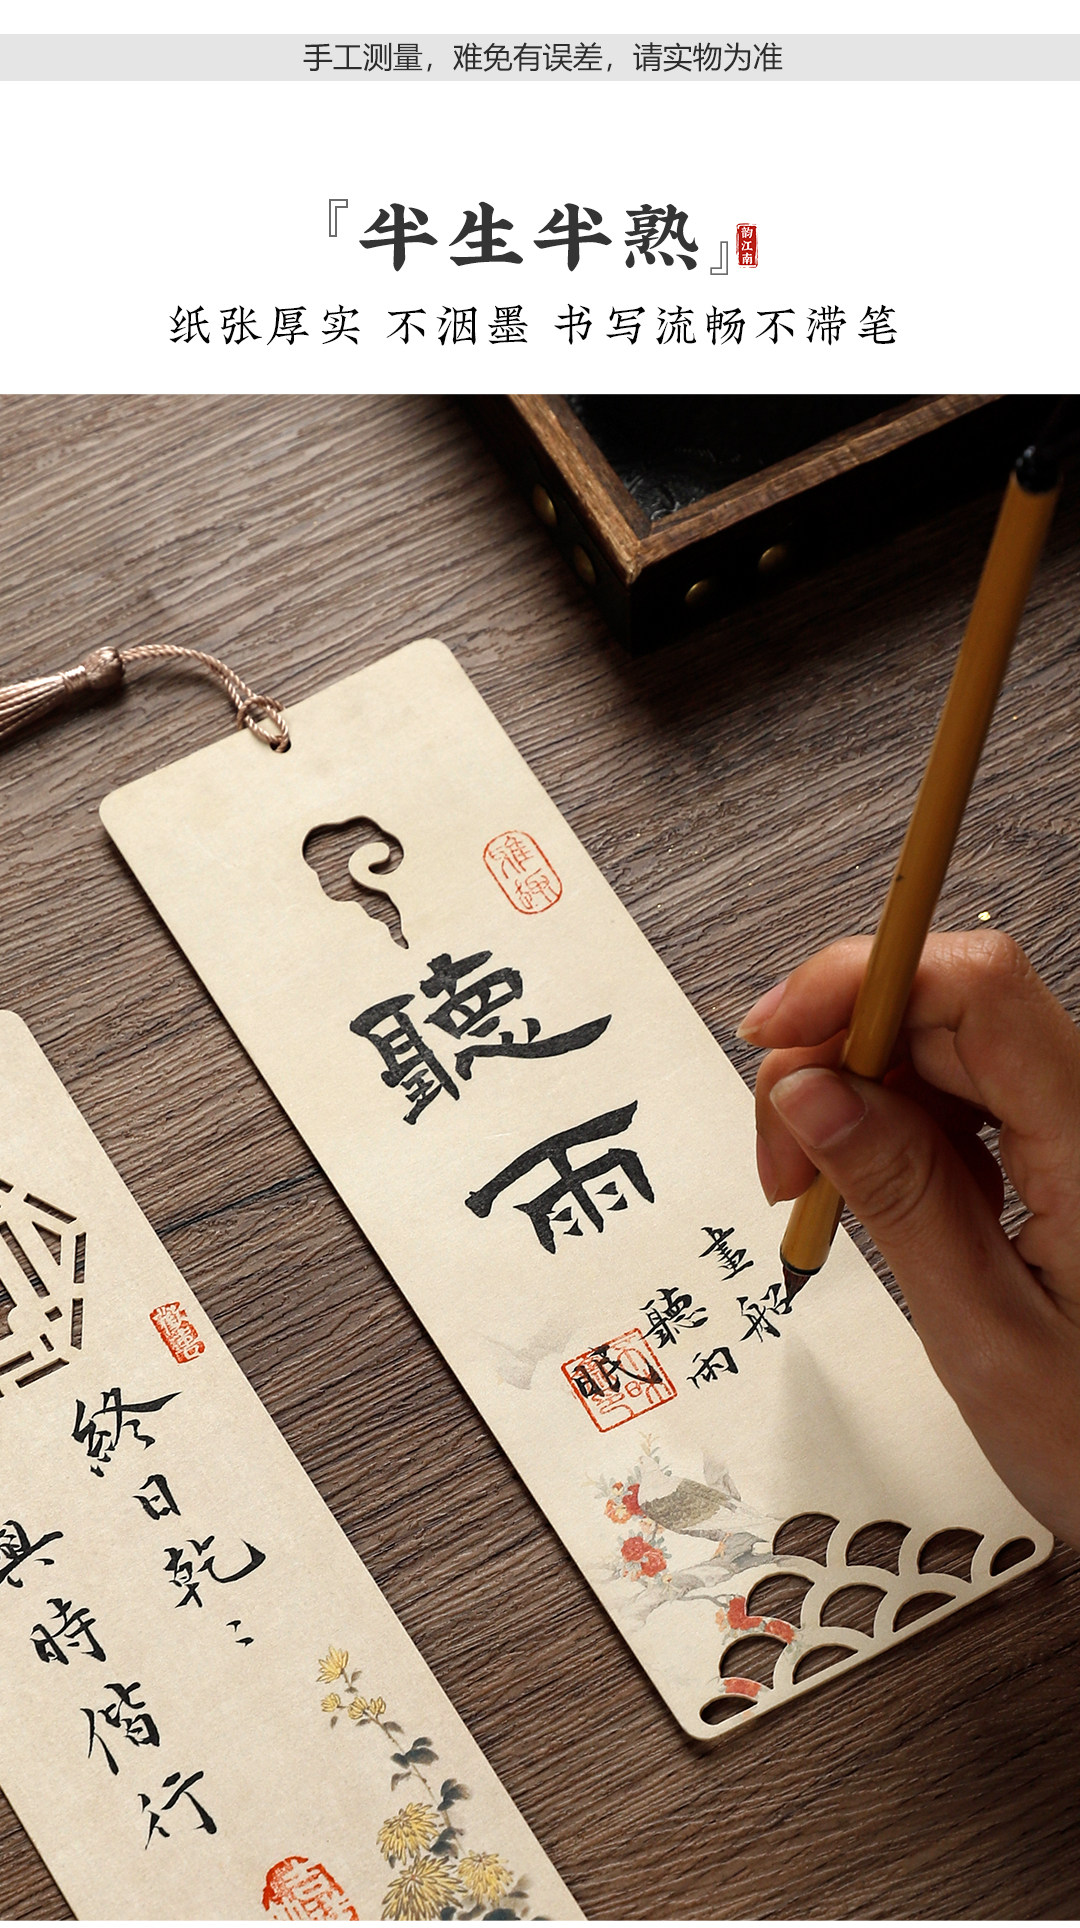 手工测量，难免有误差，请实物为准
『半生半熟』
韵江南
纸张厚实 不洇墨 书写流畅不滞笔
雅趣
聽雨
畫船
聽雨
眠
終日乾〻
與時偕行